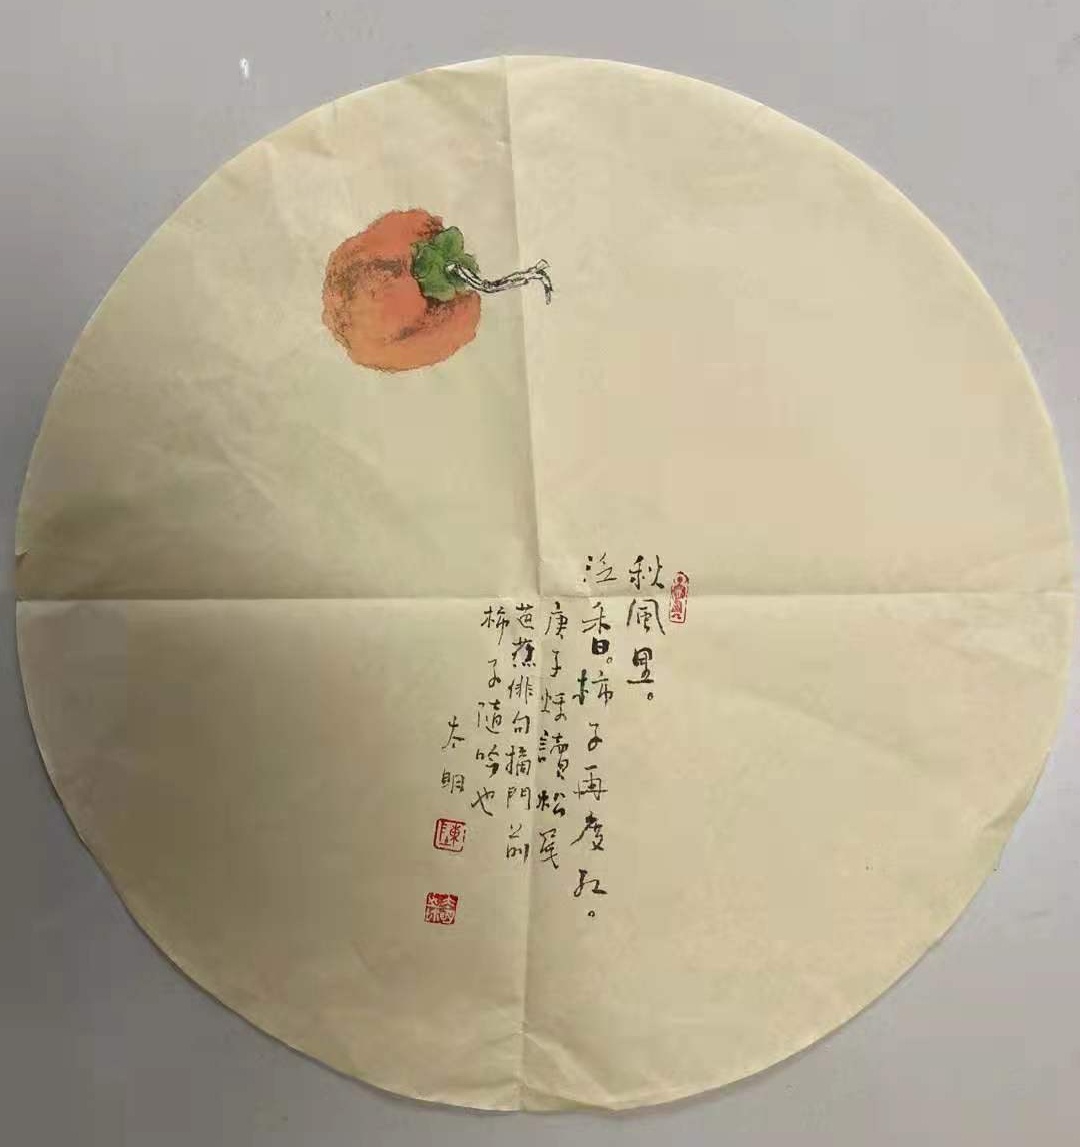 秋風里。
泛香。柿子再度紅。
庚子煙讀松尾
芭蕉俳句摘門前
柿子隨吟也
太明
陳